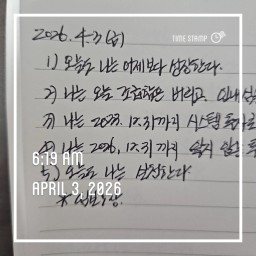 2026. 4. 3 (금)
TIME STAMP
1) 오늘도 나는 어제보다 성장한다.
2) 나는 오늘 조급함은 버리고, 인내
3) 나는 2028. 12. 31까지 시스템
4) 나는 2026. 12. 31까지
6:19 AM
5) 오늘도 나는 성장한다
APRIL 3, 2026